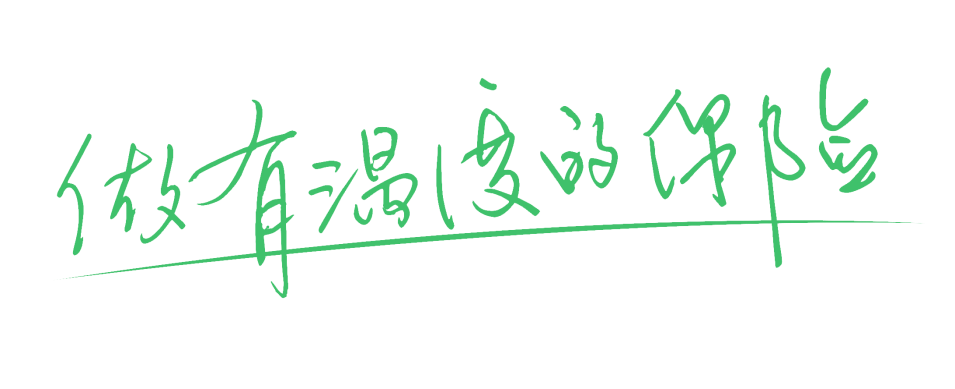 做有温度的保险